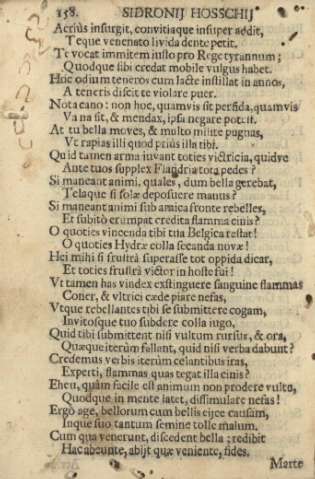 158. SIDRONIJ HOSSCHIJ
Acriùs insurgit, convitiaque insuper addit,
Teque venenato livida dente petit.
Te vocat immitem iusto pro Rege tyrannum;
Quodque sibi credat mobile vulgus habet.
Hoc odium teneros cum lacte instillat in annos,
A teneris discit te violare puer.
Nota cano: non hoc, quamvis sit perfida, quamvis
Vana sit, & mendax, ipsa negare potest.
At tu bella moves, & multo milite pugnas,
Vt rapias illi quod priùs illa tibi.
Quid tamen arma iuvant toties victricia, quidve
Ante tuos supplex Flandria tota pedes?
Si maneant animi, quales, dum bella gerebat,
Telaque si solæ deposuere manus?
Si maneant animi sub amica fronte rebelles,
Et subitò erumpat credita flamma cinis?
O quoties vincenda tibi tua Belgica restat!
O quoties Hydræ colla secanda novæ!
Hei mihi si frustrà superasse tot oppida dicar,
Et toties frustrà victor in hoste fui!
Vt tamen has vindex exstinguere sanguine flammas
Coner, & vltrici cæde piare nefas,
Vtque rebellantes tibi se submittere cogam,
Invitosque tuo subdere colla iugo,
Quid tibi submittent nisi vultum rursùr, & ora,
Quæque iterùm fallant, quid nisi verba dabunt?
Credemus verbis iterùm celantibus iras,
Experti, flammas quas tegat illa cinis?
Eheu, quàm facile est animum non prodere vultu,
Quodque in mente iatet, dissimulare nefas!
Ergò age, bellorum cum bellis eijce causam,
Inque suo tantum semine tolle malum.
Cum qua venerunt, discedent bella; redibit
Hac abeunte, abijt quæ veniente, fides.
Marte